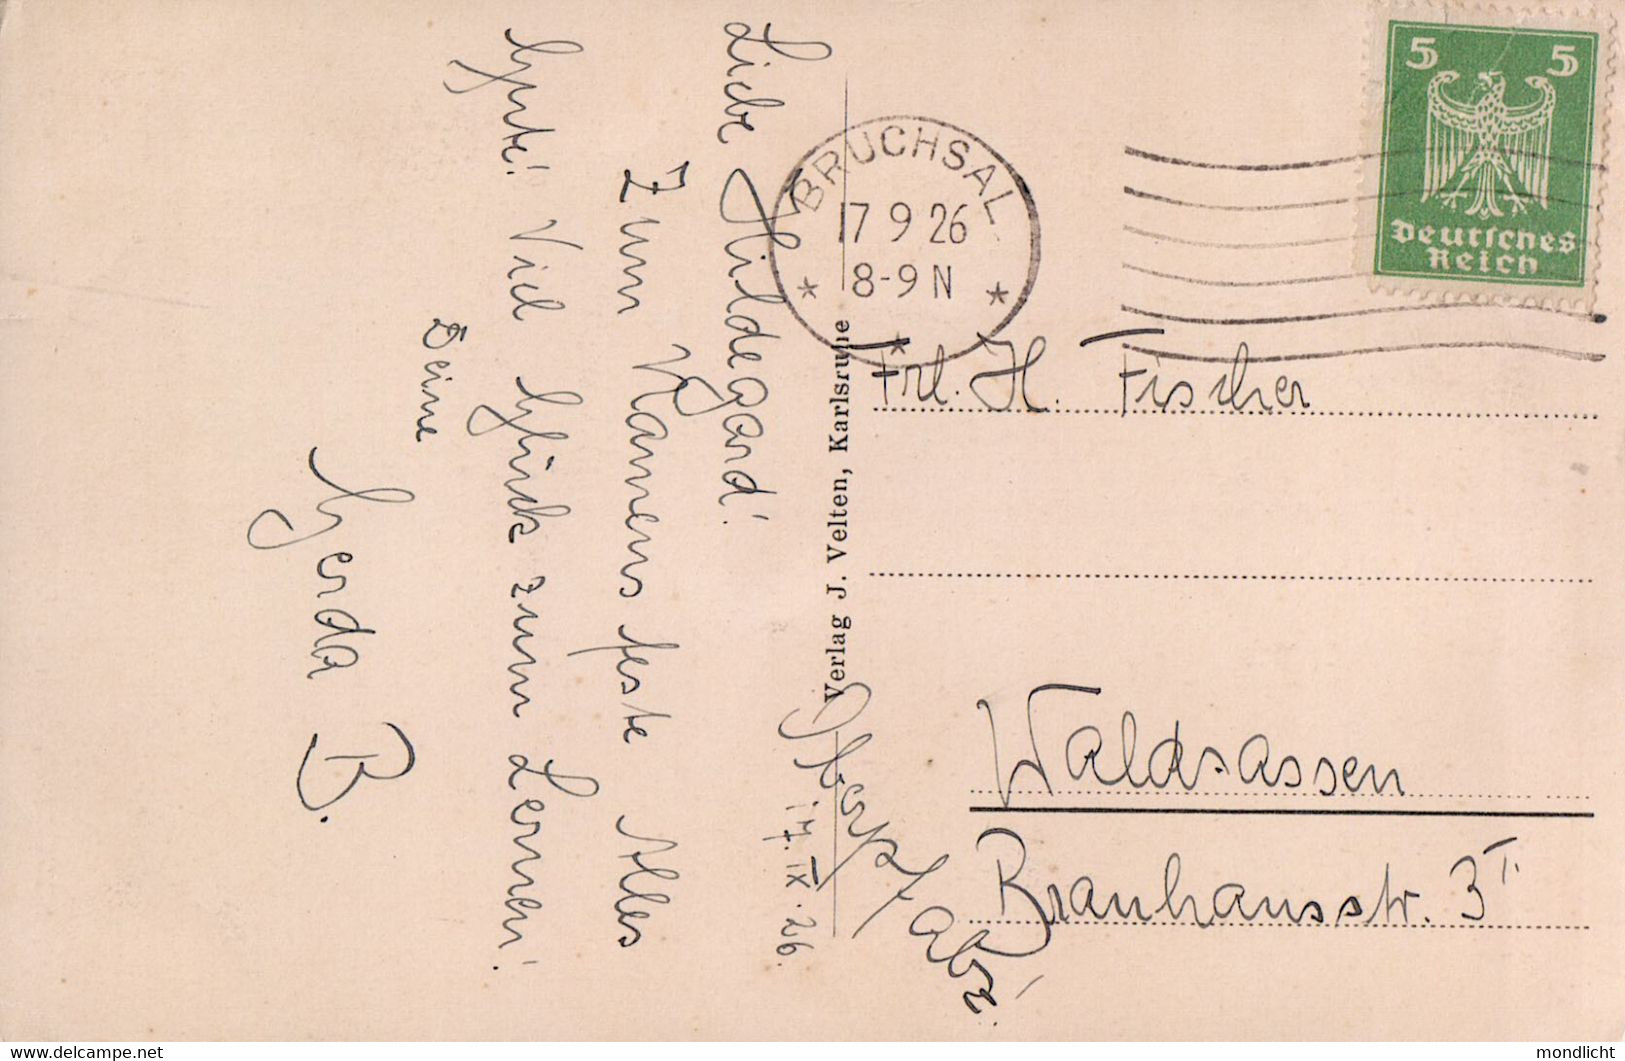 Liebe Hildegard!
Zum Namensfeste Alles
Gute! Viel Glück zum Lernen!
Deine
Gerda B.
17.IX.26.
Verlag J. Velten, Karlsruhe
BRUCHSAL
17 9 26
8-9 N
5 5
Deutsches
Reich
Frl. H. Fischer
Waldsassen
Brauhausstr. 3 II
Oberpf
delcampe.net
mondlicht